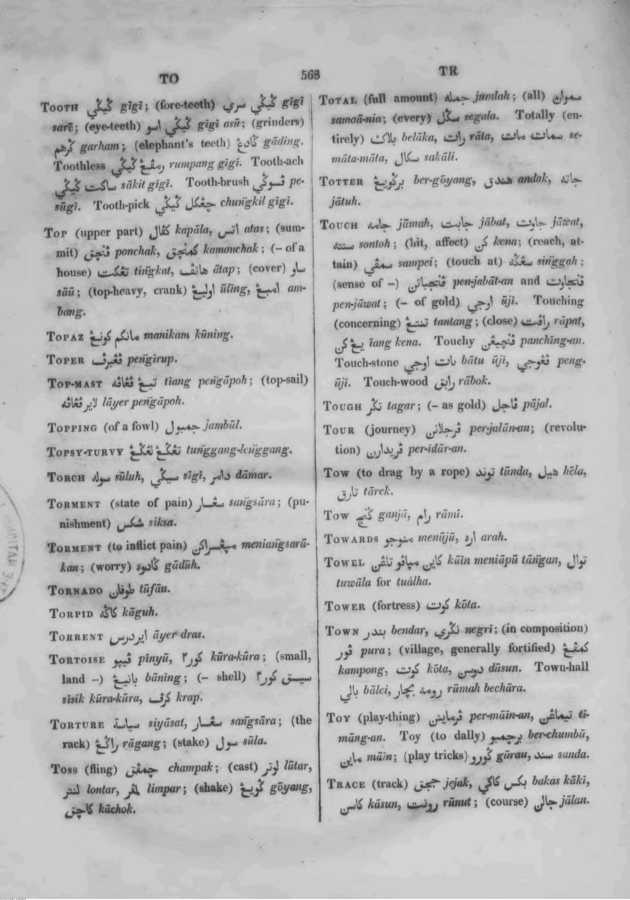 TO
568
TR
TOOTH ڬيڬي gīgī; (fore-teeth) ڬيڬي سري gīgī
sarē; (eye-teeth) ڬيڬي اسو gīgī asū; (grinders)
ڬرهم garham; (elephant's teeth) ڬاديڠ gāding.
Toothless رمڤڠ ڬيڬي rumpang gīgī. Tooth-ach
ساكت ڬيڬي sākit gīgī. Tooth-brush ڤسوڬي pe-
sūgī. Tooth-pick چڠكل ڬيڬي chungkil gīgī.
TOP (upper part) كڤال kapāla, اتس atas; (sum-
mit) ڤنچق ponchak, كمنچق kamonchak; (– of a
house) تڠكت tingkat, هاتف ātap; (cover) ساو
sāū; (top-heavy, crank) اوليڠ ūling, امبڠ am-
bang.
TOPAZ مانكم كونيڠ manikam kūning.
TOPER pengirup.
TOP-MAST تيڠ tīang pengāpoh; (top-sail)
لاير lāyer pengāpoh.
TOPPING (of a fowl) جمبول jambūl.
TOPSY-TURVY تڠڬڠ لڠڬڠ tunggang-lenggang.
TORCH سوله sūluh, سيڬي sīgī, دامر dāmar.
TORMENT (state of pain) سڠسار sangsāra; (pu-
nishment) شكس siksa.
TORMENT (to inflict pain) مڽڠسراكن meniangsarā-
kan; (worry) ڬادوه gādūh.
TORNADO طوفان tūfān.
TORPID كاڬه kāguh.
TORRENT اير درس āyer dras.
TORTOISE ڤيڽو pīnyū, كور٢ kūra-kūra; (small,
land –) بانيڠ bāning; (– shell) سيسق كور٢
sīsik kūra-kūra, كرف krap.
TORTURE سياسة siyāsat, سڠسار sangsāra; (the
rack) راڬڠ rāgang; (stake) سول sūla.
TOSS (fling) چمڤق champak; (cast) لوتر lūtar,
لنتر lontar, لمڤر limpar; (shake) ڬويڠ gōyang,
كاچق kāchok.
TOTAL (full amount) جمله jumlah; (all) سموان
samoā-nia; (every) سڬل segala. Totally (en-
tirely) بلاك belāka, رات rāta, سمات مات se-
māta-māta, سكال sakāli.
TOTTER برڬويڠ ber-gōyang, هندق andak, جاته
jātuh.
TOUCH جامه jāmah, جابت jābat, جاوت jāwat,
سنته sontoh; (hit, affect) كن kena; (reach, at-
tain) سمڤي sampei; (touch at) سڠڬه singgah;
(sense of –) ڤنجباتن pen-jabāt-an and ڤنجاوت
pen-jāwat; (– of gold) اوجي ūji. Touching
(concerning) تنتڠ tantang; (close) راڤت rāpat,
يڠ كن īang kena. Touchy ڤنچيڠن panching-an.
Touch-stone بات اوجي bātu ūji, ڤڠوجي peng-
ūji. Touch-wood رابق rābok.
TOUGH تڬر tagar; (– as gold) ڤاجل pājal.
TOUR (journey) ڤرجلانن per-jalān-an; (revolu-
tion) ڤريدارن per-īdār-an.
TOW (to drag by a rope) توند tūnda, هيل hēla,
تارق tārek.
TOW ڬنج ganjā, رام rāmi.
TOWARDS منوجو menūjū, اره arah.
TOWEL كاين مڽاڤو تاڠن kāin meniāpū tāngan, توال
tuwāla for tuālha.
TOWER (fortress) كوت kōta.
TOWN بندر bendar, نڬري negrī; (in composition)
ڤور pura; (village, generally fortified) كمڤڠ
kampong, كوت kōta, دوسن dūsun. Town-hall
بالي bālei, رومه بچار rūmah bechāra.
TOY (play-thing) ڤرماينن per-māin-an, تيماڠن ti-
māng-an. Toy (to dally) برچمبو ber-chumbū,
ماين māin; (play tricks) ڬورو gūrau, سند sanda.
TRACE (track) ججق jejak, بكس كاكي bakas kāki,
كاسن kāsun, رونت rūnut; (course) جالن jālan.